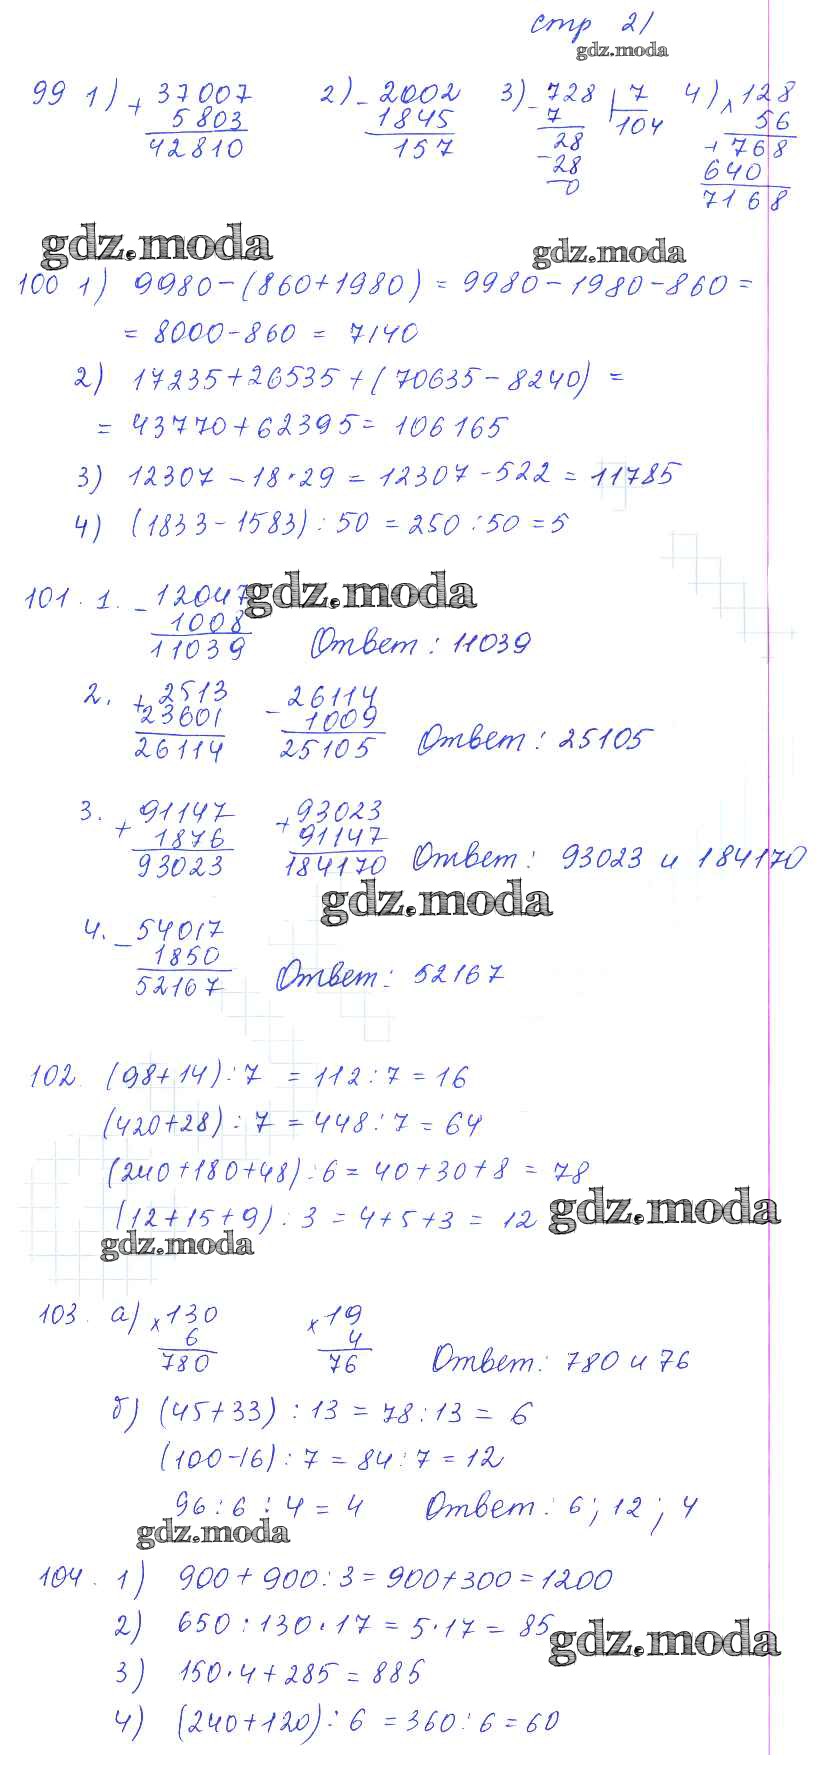 стр 21
gdz.moda
99 1) + 37007 2) - 2002 3) - 728 | 7 4) × 128
5803 1845 7 104 56
42810 157 28 + 768
- 28 640
0 7168
gdz.moda gdz.moda
100 1) 9980 - (860 + 1980) = 9980 - 1980 - 860 =
= 8000 - 860 = 7140
2) 17235 + 26535 + (70635 - 8240) =
= 43770 + 62395 = 106165
3) 12307 - 18 · 29 = 12307 - 522 = 11785
4) (1833 - 1583) : 50 = 250 : 50 = 5
101. 1. - 12047 gdz.moda
1008
11039 Ответ: 11039
2. + 2513 - 26114
23601 1009
26114 25105 Ответ: 25105
3. + 91147 + 93023
1876 91147
93023 184170 Ответ: 93023 и 184170
gdz.moda
4. - 54017
1850
52167 Ответ: 52167
102. (98 + 14) : 7 = 112 : 7 = 16
(420 + 28) : 7 = 448 : 7 = 64
(240 + 180 + 48) : 6 = 40 + 30 + 8 = 78
(12 + 15 + 9) : 3 = 4 + 5 + 3 = 12 gdz.moda
gdz.moda
103. а) × 130 × 19
6 4
780 76 Ответ: 780 и 76
б) (45 + 33) : 13 = 78 : 13 = 6
(100 - 16) : 7 = 84 : 7 = 12
96 : 6 : 4 = 4 Ответ: 6; 12; 4
gdz.moda
104. 1) 900 + 900 : 3 = 900 + 300 = 1200
2) 650 : 130 · 17 = 5 · 17 = 85 gdz.moda
3) 150 · 4 + 285 = 885
4) (240 + 120) : 6 = 360 : 6 = 60